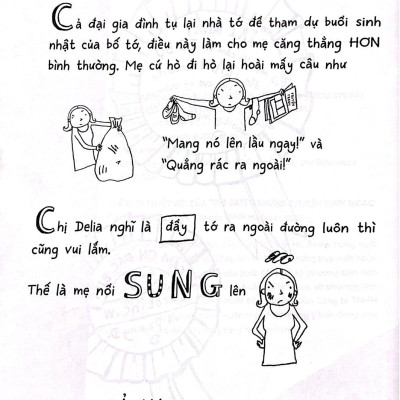 Cả đại gia đình tụ lại nhà tớ để tham dự buổi sinh
nhật của bố tớ, điều này làm cho mẹ căng thẳng HƠN
bình thường. Mẹ cứ hò đi hò lại hoài mấy câu như
"Mang nó lên lầu ngay!" và
"Quẳng rác ra ngoài!"
Chị Delia nghĩ là đẩy tớ ra ngoài đường luôn thì
cũng vui lắm.
Thế là mẹ nổi SUNG lên